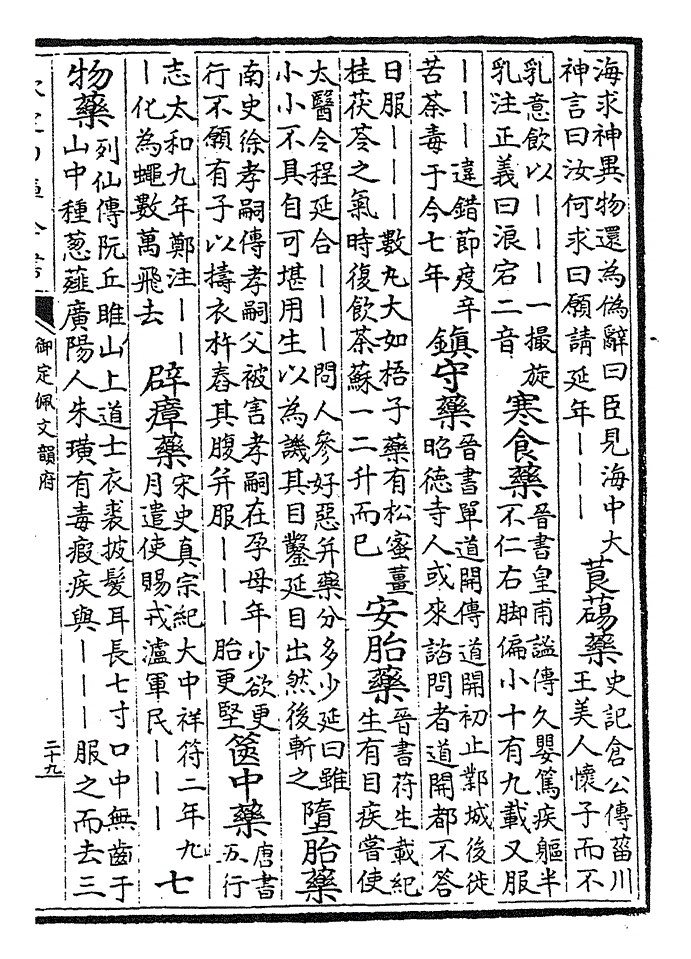 海求神異物還為偽辭曰臣見海中大
神言曰汝何求曰願請延年｜｜｜
莨蕩藥
史記倉公傳菑川
王美人懷子而不
乳意飲以｜｜｜一撮旋
乳注正義曰浪宕二音
寒食藥
晉書皇甫謐傳久嬰篤疾軀半
不仁右脚偏小十有九載又服
｜｜｜違錯節度辛
苦荼毒于今七年
鎮守藥
晉書單道開傳道開初止鄴城後徙
昭德寺人或來諮問者道開都不答
日服｜｜｜數丸大如梧子藥有松蜜薑
桂茯苓之氣時復飲茶蘇一二升而已
安胎藥
晉書苻生載紀
生有目疾嘗使
太醫令程延合｜｜｜問人參好惡并藥分多少延曰雖
小小不具自可堪用生以為譏其目鑿延目出然後斬之
墮胎藥
南史徐孝嗣傳孝嗣父被害孝嗣在孕母年少欲更
行不願有子以擣衣杵舂其腹并服｜｜｜胎更堅
篋中藥
唐書
五行
志太和九年鄭注｜｜
｜化為蠅數萬飛去
辟瘴藥
宋史真宗紀大中祥符二年九
月遣使賜戎瀘軍民｜｜｜
七
物藥
列仙傳阮丘睢山上道士衣裘披髮耳長七寸口中無齒于
山中種蔥薤廣陽人朱璜有毒瘕疾與｜｜｜服之而去三
御定佩文韻府
二十九